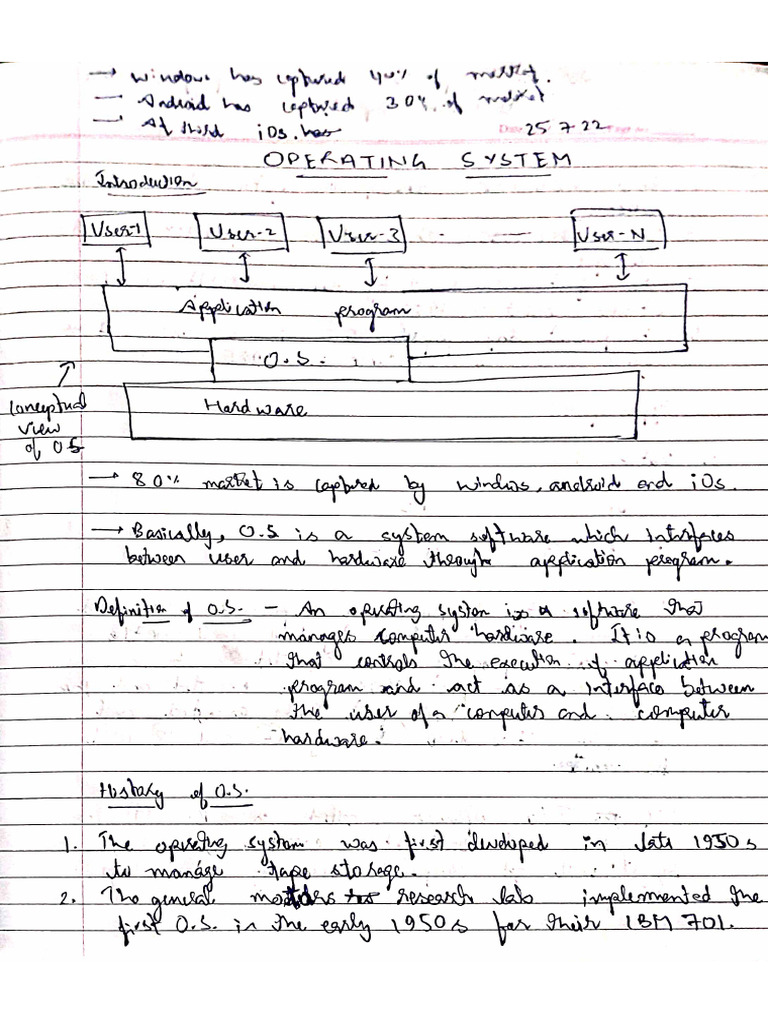 → Windows has captured 40% of market.
→ Android has captured 30% of market
→ At third iOs. has
Date 25 7 22
OPERATING SYSTEM
Introduction
User-1 User-2 User-3 - — User-N
Application program
O.S.
Hardware
Conceptual
view
of OS
→ 80% market is captured by windows, android and iOs.
→ Basically, O.S is a system software which Interfaces
between user and hardware through application program.
Definition of O.S. - An operating system is a software that
manages computer hardware. It is a program
that controls the execution of application
program and act as a Interface between
the user of a computer and computer
hardware.
History of O.S.
1. The operating system was first developed in late 1950s
to manage tape storage.
2. The general motors research lab implemented the
first O.S. in the early 1950s for their IBM 701.